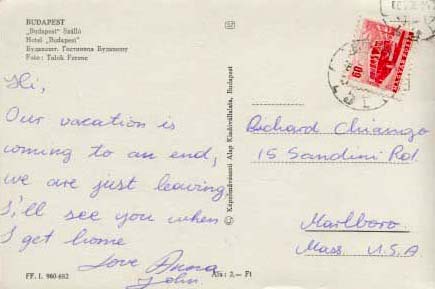 BUDAPEST
„Budapest" Szálló
Hotel „Budapest"
Будапешт. Гостиница Будапешт
Foto: Tulok Ferenc
Hi,
Our vacation is
coming to an end,
we are just leaving
I'll see you when
I get home
Love
John
FF. I. 960-682
Ára: 2,— Ft
Képzőművészeti Alap Kiadóvállalata, Budapest
60
MAGYAR POSTA
Richard Chiango
15 Sandini Rd.
Marlboro
Mass. U.S.A